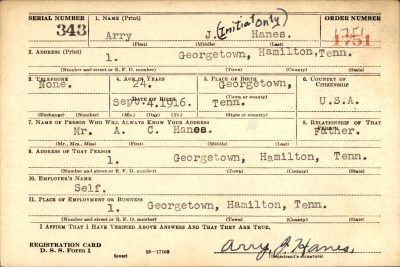 SERIAL NUMBER 1. NAME (Print) ORDER NUMBER
343 Arry J. (Initial only) Hanes. 1751
(First) (Middle) (Last)
2. ADDRESS (Print)
1. Georgetown, Hamilton, Tenn.
(Number and street or R. F. D. number) (Town) (County) (State)
3. TELEPHONE 4. AGE IN YEARS 5. PLACE OF BIRTH 6. COUNTRY OF CITIZENSHIP
None. 24. Georgetown,
DATE OF BIRTH (Town or county)
Sept. 4, 1916. Tenn. U.S.A.
(Exchange) (Number) (Mo.) (Day) (Yr.) (State or country)
7. NAME OF PERSON WHO WILL ALWAYS KNOW YOUR ADDRESS 8. RELATIONSHIP OF THAT PERSON
Mr. A. C. Hanes. Father.
(Mr., Mrs., Miss) (First) (Middle) (Last)
9. ADDRESS OF THAT PERSON
1. Georgetown, Hamilton, Tenn.
(Number and street or R. F. D. number) (Town) (County) (State)
10. EMPLOYER'S NAME
Self.
11. PLACE OF EMPLOYMENT OR BUSINESS
1. Georgetown, Hamilton, Tenn.
(Number and street or R. F. D. number) (Town) (County) (State)
I AFFIRM THAT I HAVE VERIFIED ABOVE ANSWERS AND THAT THEY ARE TRUE.
REGISTRATION CARD
D. S. S. Form 1 (over) 16—17105 Arry J. Hanes.
(Registrant's signature)